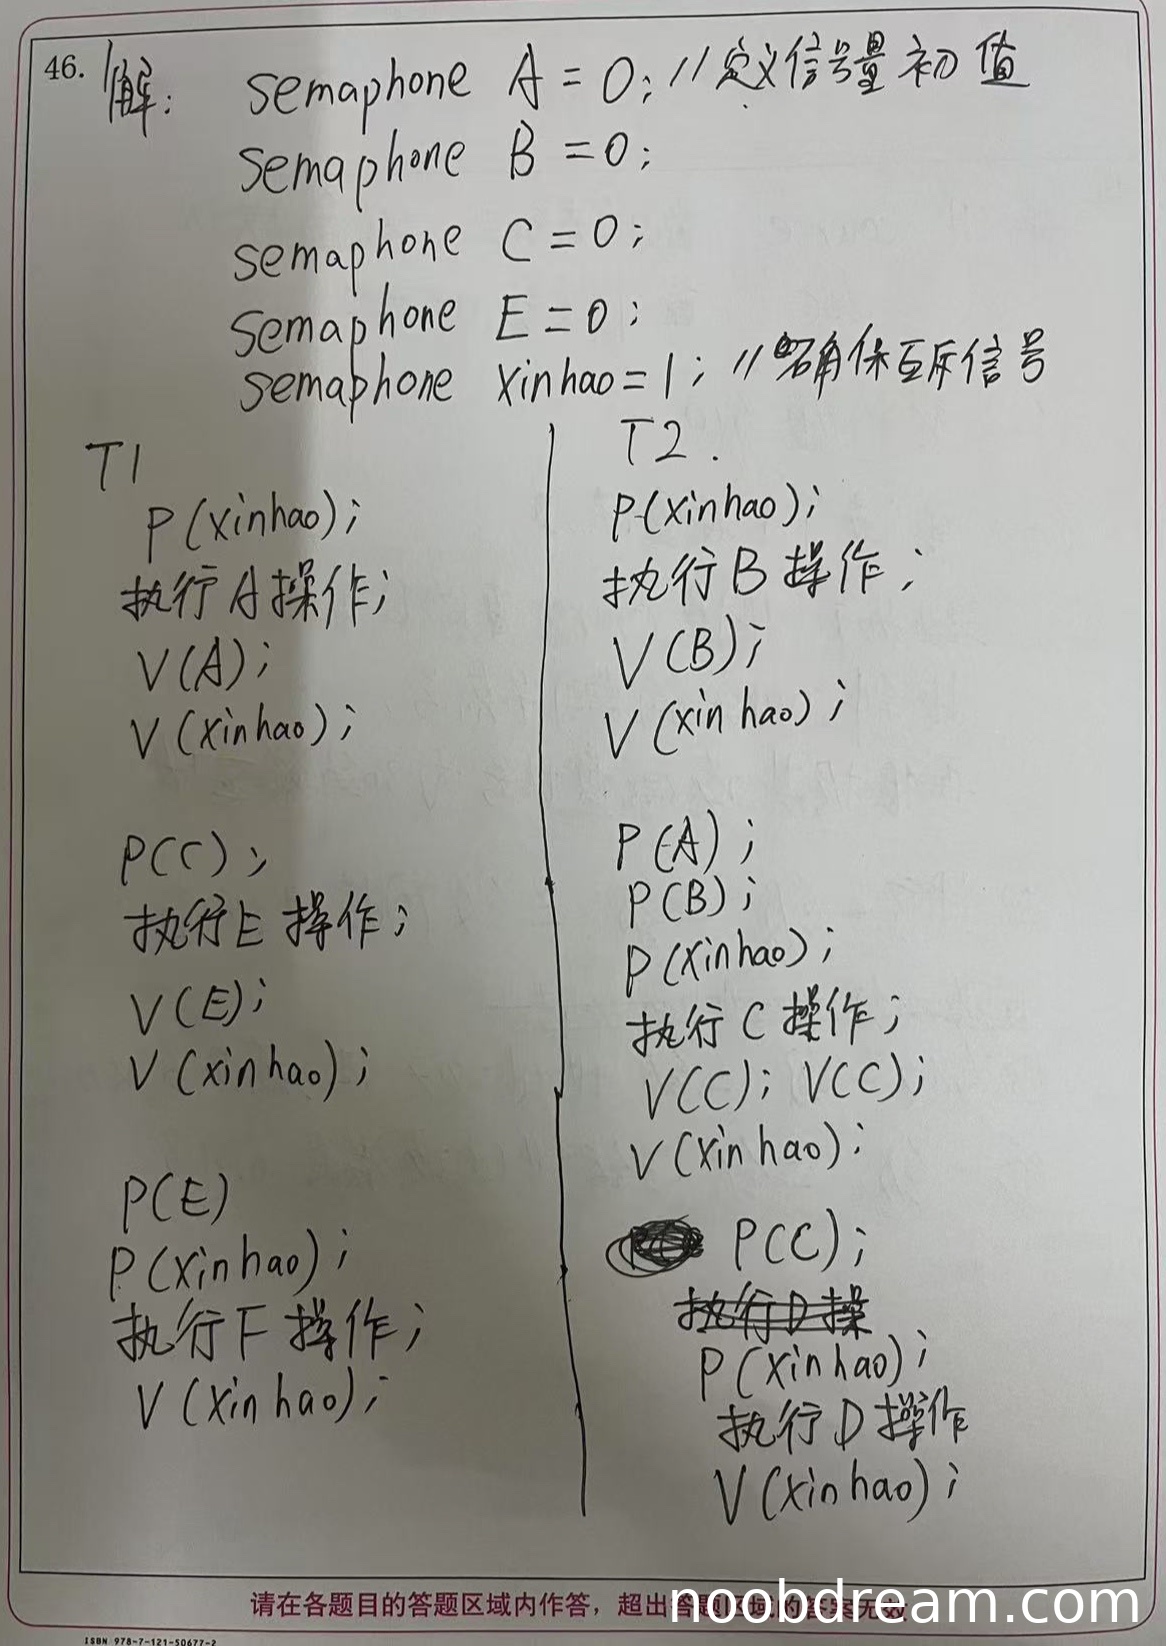 46. 解: semaphone A = 0; //定义信号量初值
semaphone B = 0;
semaphone C = 0;
semaphone E = 0;
semaphone xinhao = 1; //确保互斥信号
T1
P(xinhao);
执行A操作;
V(A);
V(xinhao);
P(C);
执行E操作;
V(E);
V(xinhao);
P(E)
P(xinhao);
执行F操作;
V(xinhao);
T2.
P(xinhao);
执行B操作;
V(B);
V(xinhao);
P(A);
P(B);
P(xinhao);
执行C操作;
V(C); V(C);
V(xinhao);
P(C);
执行D操
P(xinhao);
执行D操作
V(xinhao);
请在各题目的答题区域内作答，超出答题区域的答案无效
noobdream.com
ISBN 978-7-121-50677-2